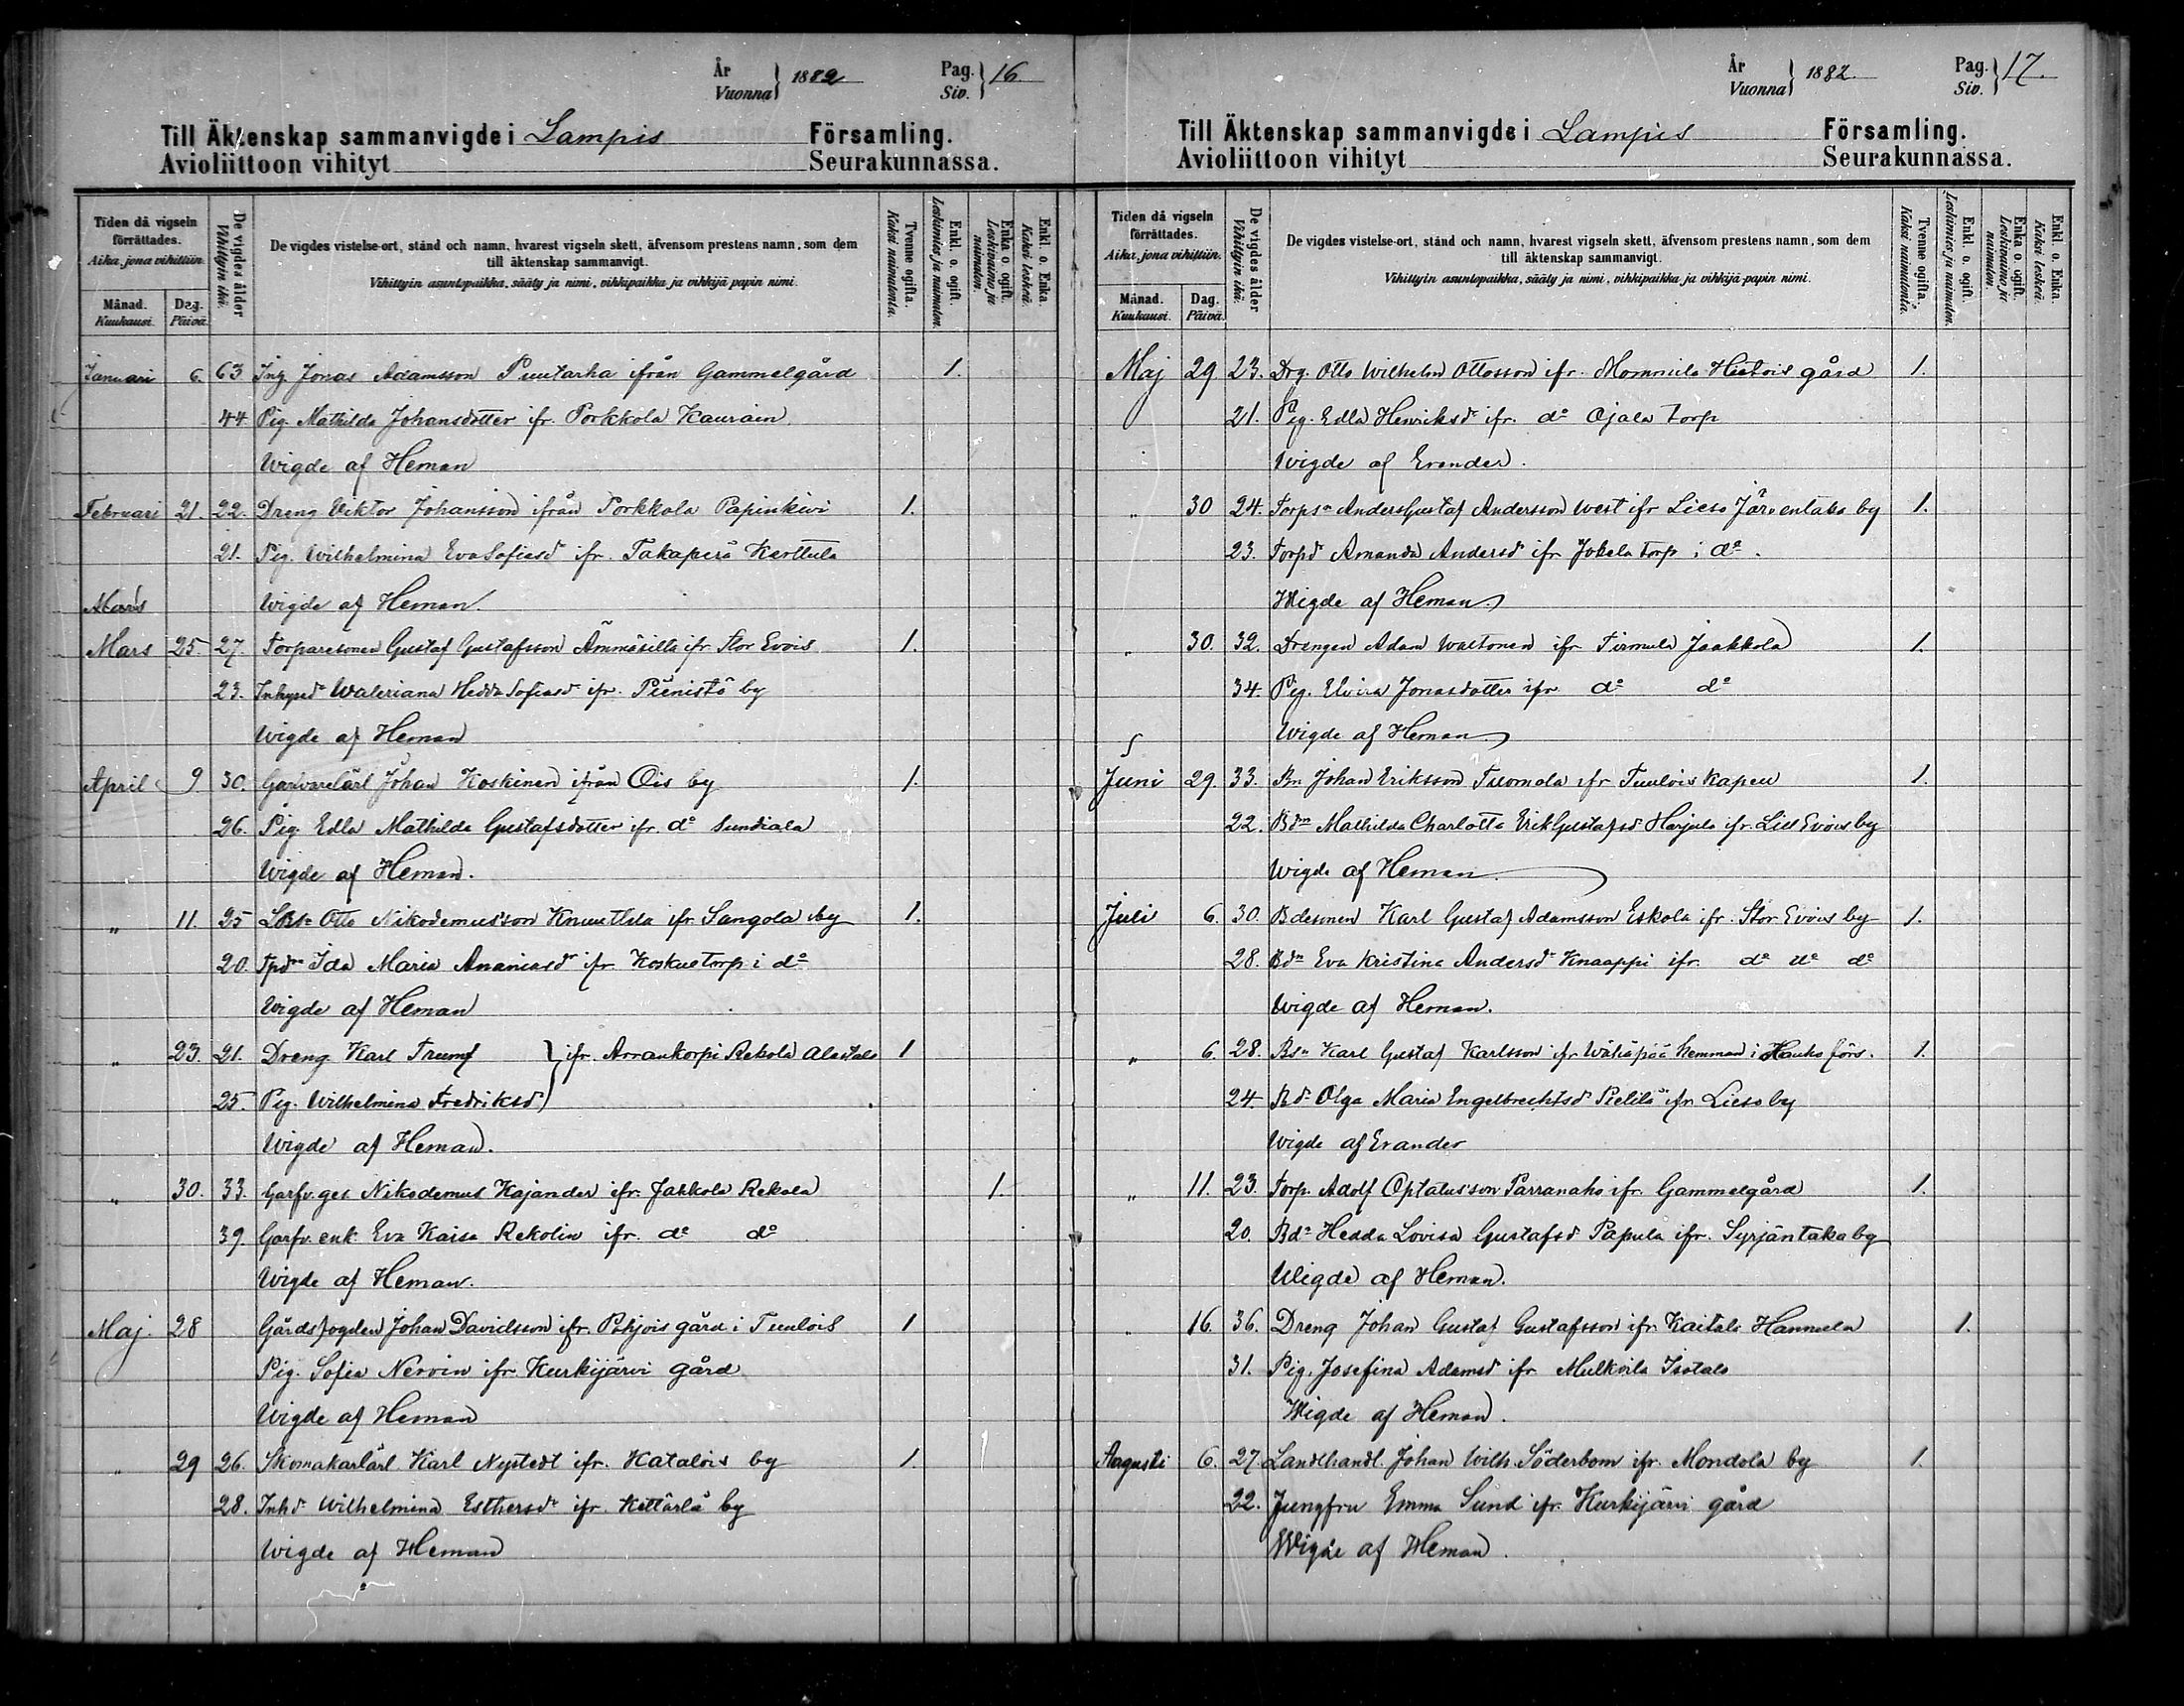 År
Vuonna } 1882 Pag.
Siv. } 16.
Till Äktenskap sammanvigde i Lampis Församling.
Avioliittoon vihityt Seurakunnassa.
Tiden då vigseln förrättades.
Aika, jona vihittiin.
Månad.
Kuukausi.
Dag.
Päivä.
De vigdes ålder
Vihittyin ikä.
De vigdes vistelse-ort, stånd och namn, hvarest vigseln skett, äfvensom prestens namn, som dem
till äktenskap sammanvigt.
Vihittyin asuntopaikka, sääty ja nimi, vihkipaikka ja vihkijä-papin nimi.
Tvenne ogifta.
Kaksi naimatonta.
Enkl. o. ogift.
Leskimies ja naimaton.
Enka o. ogift.
Leskivaimo ja naimaton.
Enkl. o. Enka.
Kaksi leskeä.
Januari 6. 63 Inh. Jonas Adamsson Puutarha ifrån Gammelgård 1.
44 Pig. Mathilda Johansdotter ifr. Porkkola Kaurain
Wigde af Heman
Februari 21. 22. Dreng Viktor Johansson ifrån Porkkola Papinkivi 1.
21. Pig. Wilhelmina Eva Sofiasd ifr. Takaperä Kerttula
Mars Wigde af Heman.
Mars 25. 27. Torparesonen Gustaf Gustafsson Ämmäsilla ifr. Stor Evois 1.
23. Inhysd Waleriana Hedda Sofiasd ifr. Pienistö by
Wigde af Heman
April 9 30. Garvarelärl Johan Koskinen ifrån Ois by 1.
26. Pig. Edla Mathilda Gustafsdotter ifr. d:o Sundiala
Wigde af Heman.
„ 11. 25 Otto Nikodemusson Knuuttila ifr. Sangola by 1.
20. Tpdr Ida Maria Ananiasdr ifr. Koskue torp i d:o
Wigde af Heman
„ 23. 21. Dreng Karl Trumf } ifr. Arrankorpi Rekola Alastalo 1
25. Pig. Wilhelmina Fredriksd
Wigde af Heman.
„ 30. 33. Garfv. ges. Nikodemus Kajander ifr. Jakkola Rekola 1.
39. Garfv. enk. Eva Kaisa Rekolin ifr. d:o d:o
Wigde af Heman.
Maj. 28 Gårdsfogden Johan Davidsson ifr. Pohjois gård i Tuulois 1
Pig. Sofia Nervin ifr. Kurkijärvi gård
Wigde af Heman
„ 29 26. Skomakarlärl. Karl Nystedt ifr. Katalois by 1.
28. Inhd Wilhelmina Esthersdr ifr. Kettärlä by
Wigde af Heman
År
Vuonna } 1882. Pag.
Siv. } 17.
Till Äktenskap sammanvigde i Lampis Församling.
Avioliittoon vihityt Seurakunnassa.
Tiden då vigseln förrättades.
Aika, jona vihittiin.
Månad.
Kuukausi.
Dag.
Päivä.
De vigdes ålder
Vihittyin ikä.
De vigdes vistelse-ort, stånd och namn, hvarest vigseln skett, äfvensom prestens namn, som dem
till äktenskap sammanvigt.
Vihittyin asuntopaikka, sääty ja nimi, vihkipaikka ja vihkijä-papin nimi.
Tvenne ogifta.
Kaksi naimatonta.
Enkl. o. ogift.
Leskimies ja naimaton.
Enka o. ogift.
Leskivaimo ja naimaton.
Enkl. o. Enka.
Kaksi leskeä.
Maj 29 23. Drg. Otto Wilhelm Ottosson ifr. Mommila Hietois gård 1.
21. Pig. Edla Henriksdr ifr. d:o Ojala torp
Wigde af Evander.
„ 30 24. Torpsn Anders Gustaf Andersson West ifr Lieso Järventaka by 1.
23. Torpd Amanda Andersd ifr Jokela torp i d:o.
Wigde af Heman
„ 30. 32. Drengen Adam Wartonen ifr Tirmula Jaakkola 1.
34. Pig. Elvira Jonasdotter ifr d:o d:o
Wigde af Heman
Juni 29. 33. Bn Johan Eriksson Tuomola ifr Tuulois kapell 1.
22. Bdn Mathilda Charlotta Erik Gustafsd. Harjula ifr. Lill Evois by
Wigde af Heman.
Juli 6. 30. Bdesonen Karl Gustaf Adamsson Eskola ifr. Stor Evois by 1.
28. Bdn Eva Kristina Andersdr Knaappi ifr. d:o d:o d:o
Wigde af Heman.
„ 6. 28. Bsn Karl Gustaf Karlsson ifr Wähäpää hemman i Hauho förs. 1.
24. Bdr Olga Maria Engelbrechtsd Pielilä ifr. Lieso by
Wigde af Evander
„ 11. 23. Torp. Adolf Optatusson Parranaho ifr. Gammelgård 1.
20. Bdr Hedda Lovisa Gustafsd Papula ifr. Syrjäntaka by
Wigde af Heman.
„ 16. 36. Dreng Johan Gustaf Gustafsson ifr. Kaitala Hannula 1.
31. Pig. Josefina Adamsd ifr Mulkoila Isotalo
Wigde af Heman.
Augusti 6. 27. Landthandl. Johan Wilh. Söderbom ifr. Mondola by 1.
22. Jungfru Emma Sund ifr. Kurkijärvi gård
Wigde af Heman.